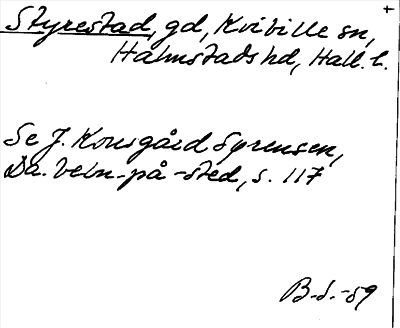 Styrestad, gd, Kvibille sn,
Halmstads hd, Hall. l.
Se J. Kousgård Sørensen,
Da. bebn. på -sted, s. 117
B.S.-59